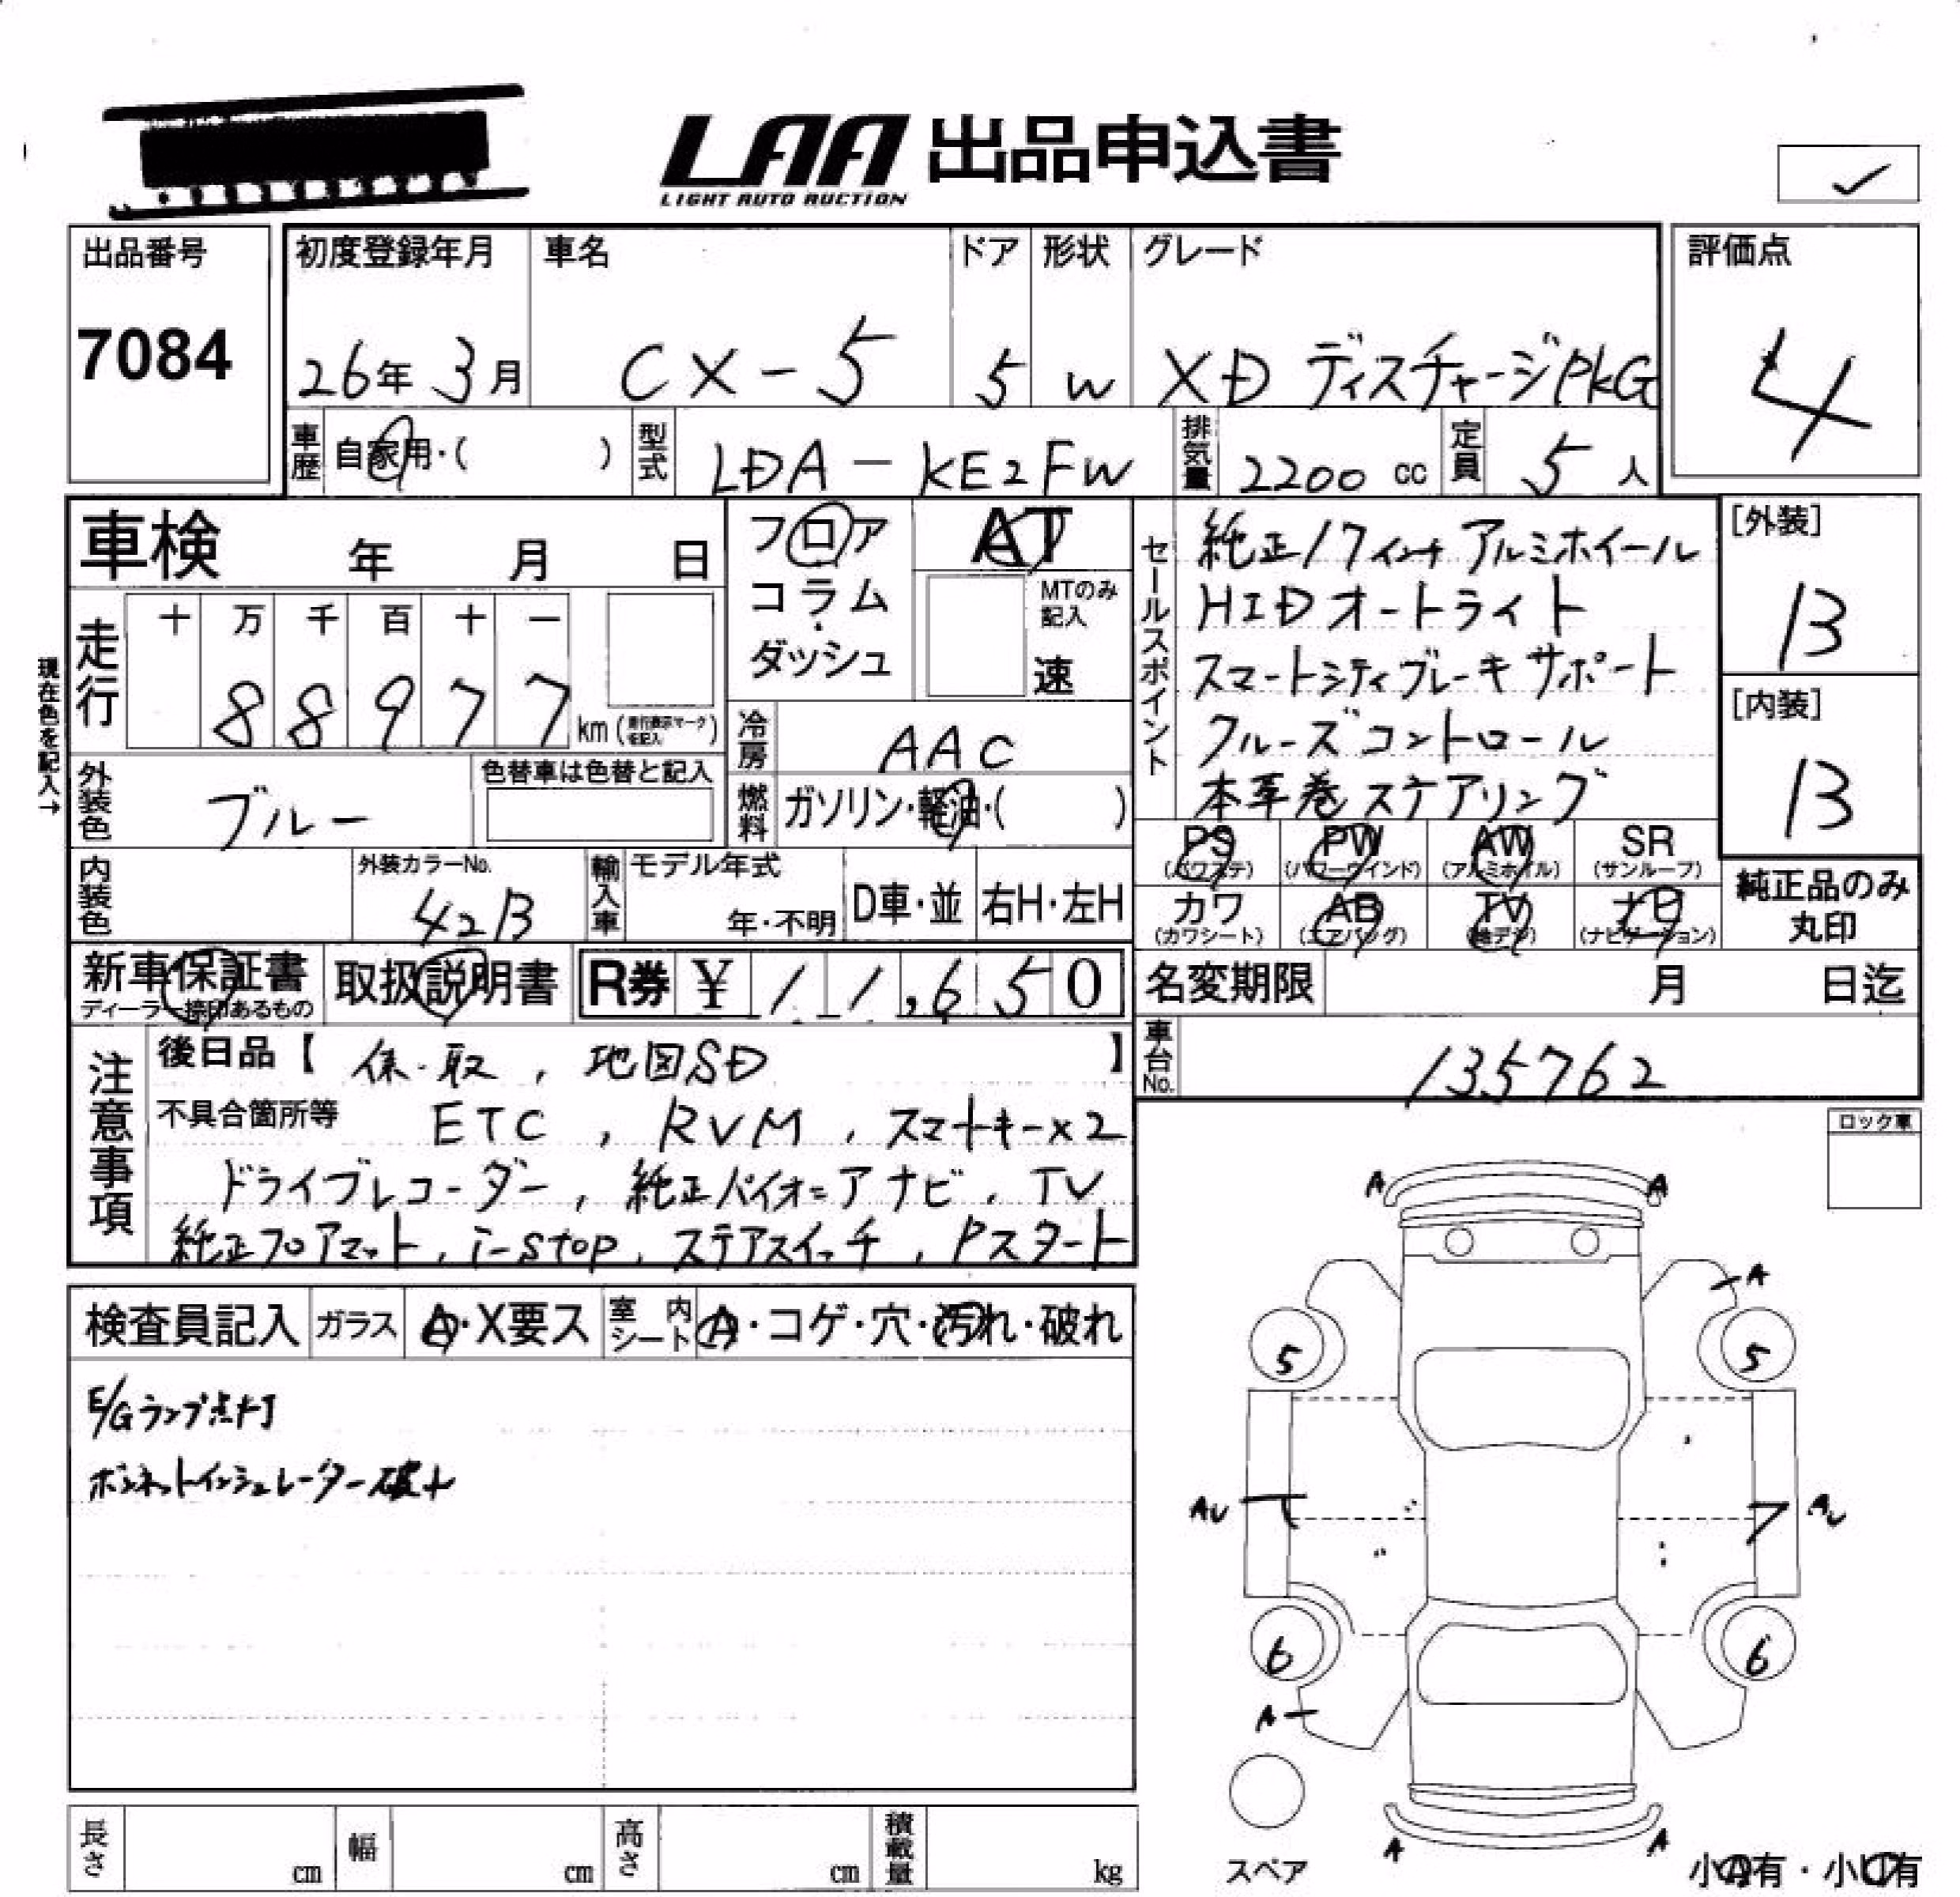 LAA 出品申込書
LIGHT AUTO AUCTION
出品番号
7084
初度登録年月
26年 3月
車名
CX-5
ドア
5
形状
W
グレード
XD ディスチャージPKG
評価点
4
車歴 自家用・( )
型式 LDA-KE2FW
排気量 2200 cc
定員 5 人
車検 年 月 日
走行
十 万 千 百 十 一
8 8 9 7 7
km (走行表示マークを記入)
現在色を記入→
フロア
コラム
ダッシュ
AT
MTのみ記入
速
冷房 AAC
燃料 ガソリン・軽油・( )
外装色 ブルー
色替車は色替と記入
内装色
外装カラーNo.
42B
輸入車
モデル年式
年・不明
D車・並
右H・左H
セールスポイント
純正17インチアルミホイール
HIDオートライト
スマートシティブレーキサポート
クルーズコントロール
本革巻ステアリング
[外装]
B
[内装]
B
PS PW AW SR
(パワステ) (パワーウインド) (アルミホイル) (サンルーフ)
カワ AB TV ナビ
(カワシート) (エアバッグ) (地デジ) (ナビゲーション)
純正品のみ
丸印
新車保証書
ディーラー捺印あるもの
取扱説明書
R券 ¥ 11,650
名変期限 月 日迄
車台No. 135762
注意事項
後日品【 保・取, 地図SD 】
不具合箇所等 ETC, RVM, スマートキー×2
ドライブレコーダー, 純正パイオニアナビ, TV
純正フロアマット, i-stop, ステアスイッチ, Pスタート
ロック車
検査員記入
ガラス A・X要ス
室内シート A・コゲ・穴・汚れ・破れ
E/Gランプ点灯
ボンネットインシュレーター破れ
A A
A
5 5
AU AU
6 6
A
A A
スペア
小A有・小U有
長さ cm
幅 cm
高さ cm
積載量 kg